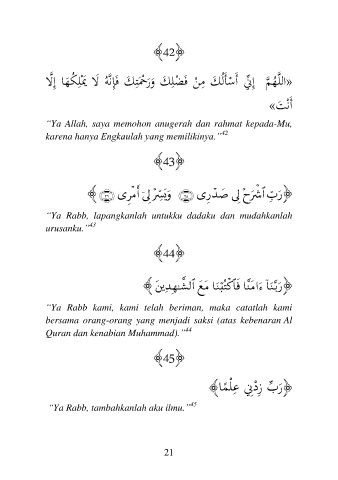 ﴾42﴿
«اللَّهُمَّ إِنِّي أَسْأَلُكَ مِنْ فَضْلِكَ وَرَحْمَتِكَ فَإِنَّهُ لَا يَمْلِكُهَا إِلَّا
أَنْتَ»
“Ya Allah, saya memohon anugerah dan rahmat kepada-Mu,
karena hanya Engkaulah yang memilikinya.”42
﴾43﴿
﴿رَبِّ ٱشْرَحْ لِى صَدْرِى ۝٢٥ وَيَسِّرْ لِىٓ أَمْرِى ۝٢٦ ﴾
“Ya Rabb, lapangkanlah untukku dadaku dan mudahkanlah
urusanku.”43
﴾44﴿
﴿رَبَّنَآ ءَامَنَّا فَٱكْتُبْنَا مَعَ ٱلشَّـٰهِدِينَ ﴾
“Ya Rabb kami, kami telah beriman, maka catatlah kami
bersama orang-orang yang menjadi saksi (atas kebenaran Al
Quran dan kenabian Muhammad).”44
﴾45﴿
﴿رَبِّ زِدْنِي عِلْمًا﴾
“Ya Rabb, tambahkanlah aku ilmu.”45
21